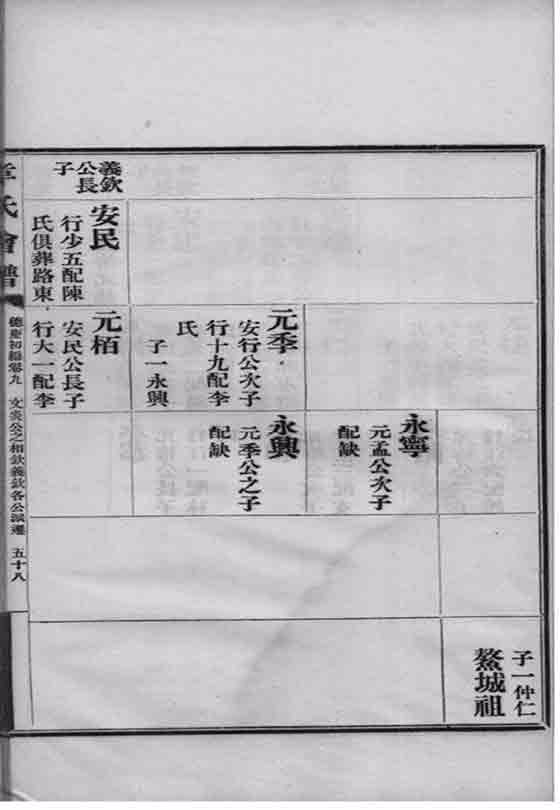 子一仲仁
鰲城祖
永寧
元孟公次子
配缺
元季
安行公次子
行十九配李
氏
子一永興
永興
元季公之子
配缺
義欽
公長
子
安民
行少五配陳
氏俱葬路東
元栢
安民公長子
行大一配李
氏會譜
卷九 文炎公之相欽義欽各公派遷 五十八